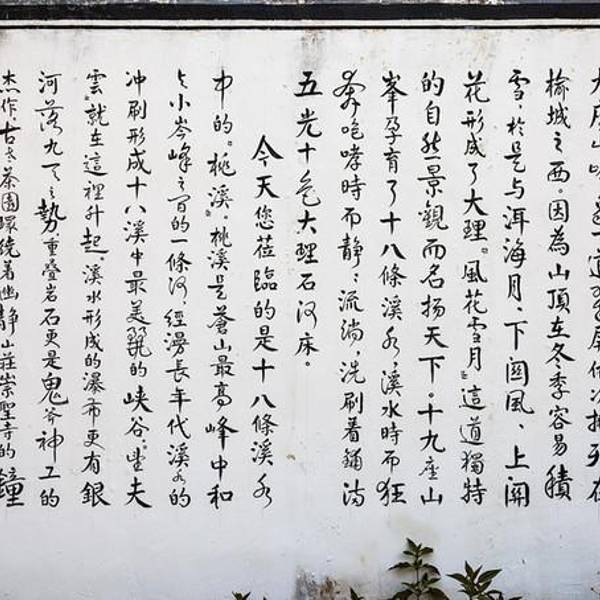 榆城之西。因為山頂在冬季容易積
雪,於是与洱海月、下関風、上関
花形成了大理“風花雪月”這道獨特
的自然景觀而名扬天下。十九座山
峯孕育了十八條溪水溪水時而狂
奔咆哮時而静静流淌,洗刷着鋪满
五光十色大理石河床。
今天您莅臨的是十八條溪水
中的“桃溪”。桃溪是蒼山最高峰中和
小岑峰之间的一條河,經漫長年代溪水的
冲刷形成十八溪中最美麗的峡谷。
雲”就在這裡升起。溪水形成的瀑布更有銀
河落九天之勢,重叠岩石更是鬼斧神工的
杰作,古老茶園環繞着幽静山莊崇聖寺的鐘